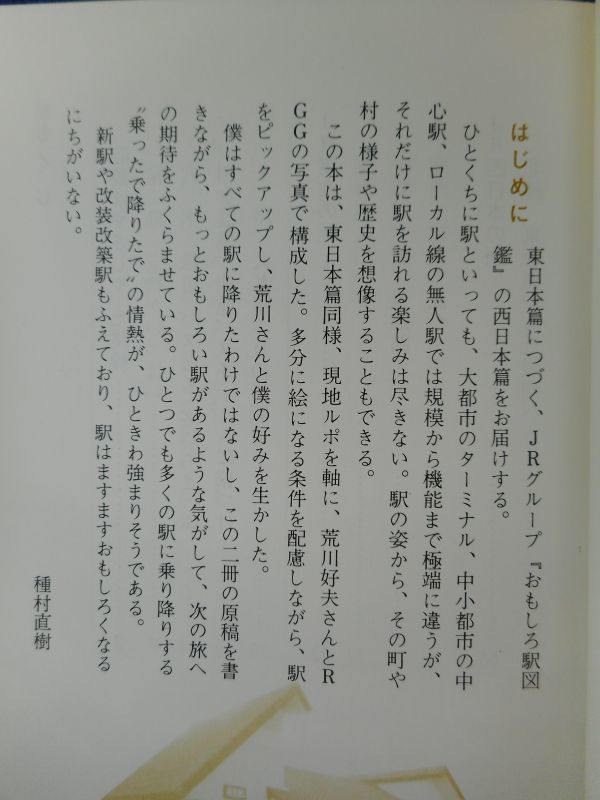 はじめに
東日本篇につづく、JRグループ『おもしろ駅図
鑑』の西日本篇をお届けする。
ひとくちに駅といっても、大都市のターミナル、中小都市の中
心駅、ローカル線の無人駅では規模から機能まで極端に違うが、
それだけに駅を訪れる楽しみは尽きない。駅の姿から、その町や
村の様子や歴史を想像することもできる。
この本は、東日本篇同様、現地ルポを軸に、荒川好夫さんとR
GGの写真で構成した。多分に絵になる条件を配慮しながら、駅
をピックアップし、荒川さんと僕の好みを生かした。
僕はすべての駅に降りたわけではないし、この二冊の原稿を書
きながら、もっとおもしろい駅があるような気がして、次の旅へ
の期待をふくらませている。ひとつでも多くの駅に乗り降りする
〝乗ったで降りたで〟の情熱が、ひときわ強まりそうである。
新駅や改装改築駅もふえており、駅はますますおもしろくなる
にちがいない。
種村直樹